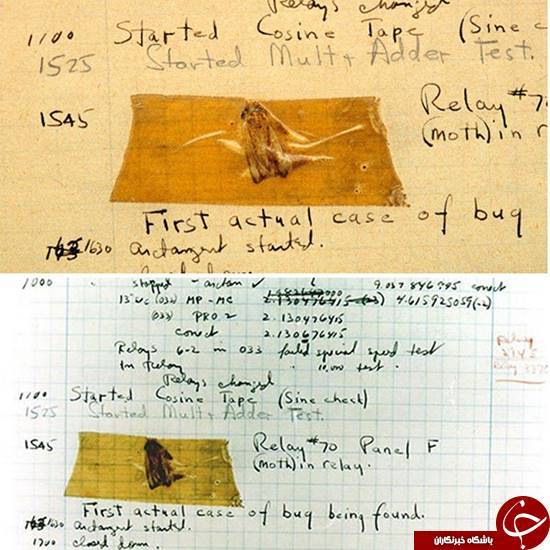 Relays changed
1100 Started Cosine Tape (Sine che
1525 Started Mult + Adder Test.
1545 Relay #7
(moth) in r
First actual case of bug
1630 arctangent started.
closed down.
1000 stopped - arctan ✓ 9.037 846 795 correct
13" uc (032) MP - MC 2.130476415 4.615925059(-2)
(033) PRO 2 2.130476415
correct 2.130676415
Relays 6-2 in 033 failed special speed test
In Relay 10,000 test.
Relays changed
1100 Started Cosine Tape (Sine check)
1525 Started Mult + Adder Test.
1545 Relay #70 Panel F
(moth) in relay.
First actual case of bug being found.
1630 arctangent started.
1700 closed down.
Relay
باشگاه خبرنگاران